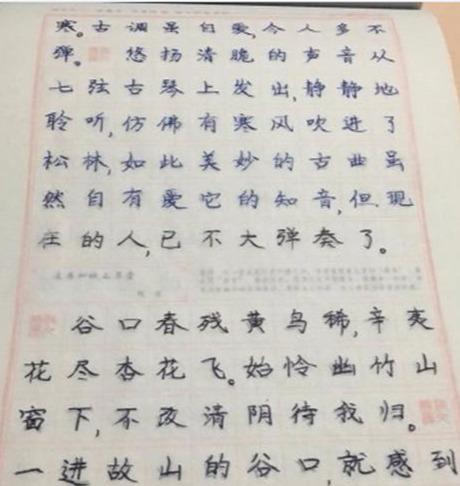 寒。古调虽自爱,今人多不
弹。 悠扬清脆的声音从
七弦古琴上发出,静静地
聆听,仿佛有寒风吹进了
松林,如此美妙的古曲虽
然自有爱它的知音,但现
在的人,已不大弹奏了。
谷口春残黄鸟稀,辛夷
花尽杏花飞。始怜幽竹山
窗下,不改清阴待我归。
一进故山的谷口,就感到